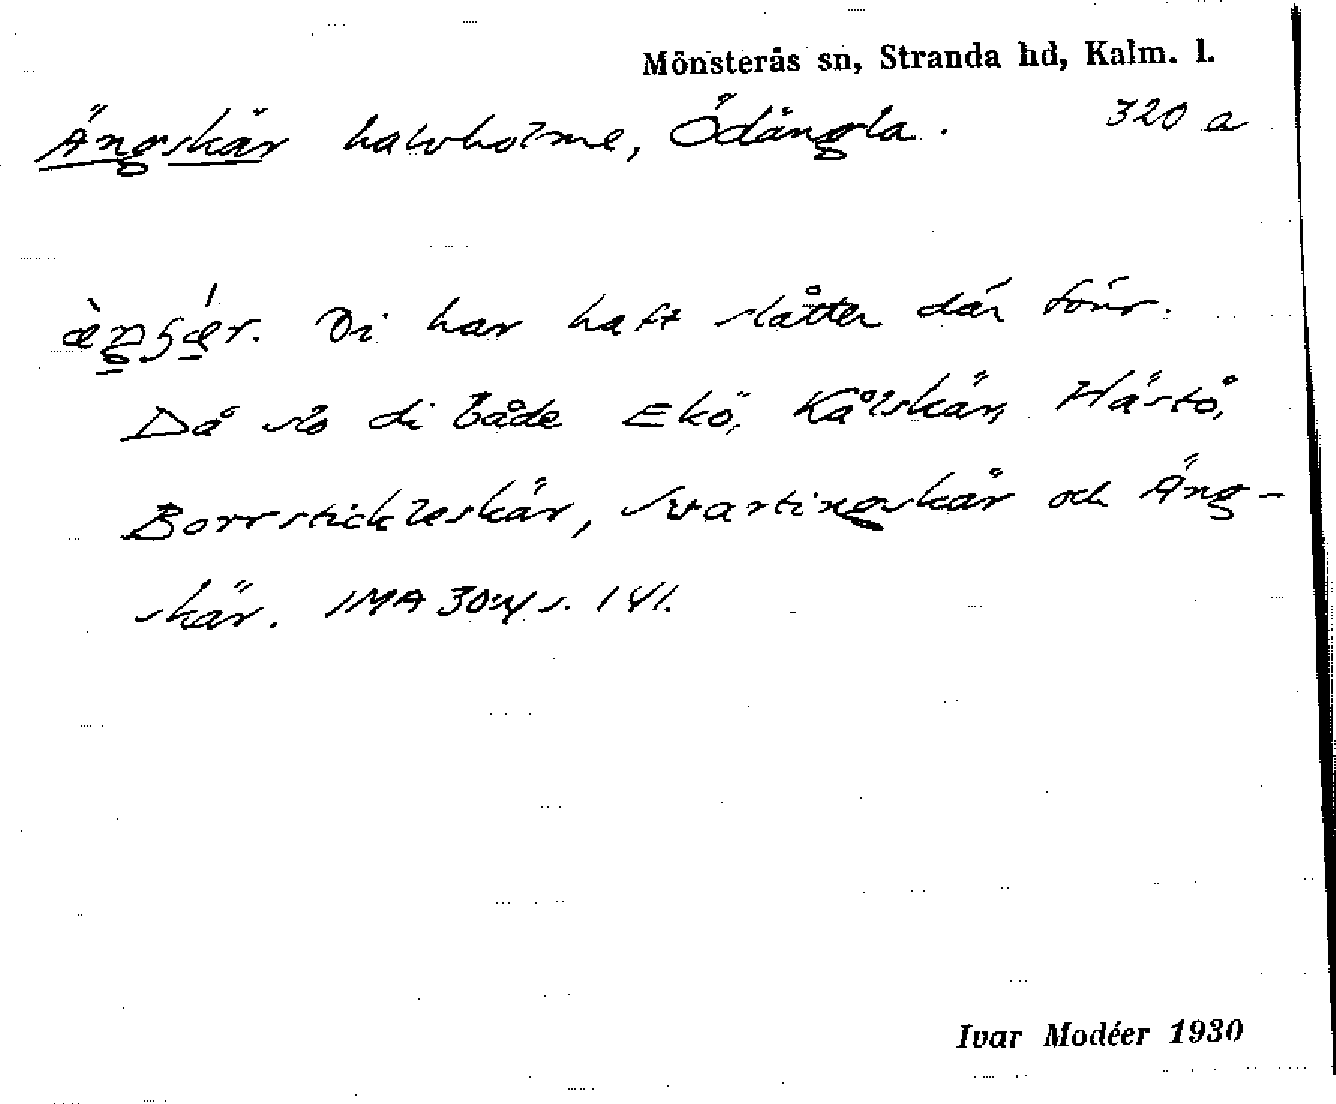 Mönsterås sn, Stranda hd, Kalm. l.
Ängskär halvholme, Ödängla. 320 a
Di har haft slåtter där förr.
Då slo di både Ekö, Kålskär, Hästö,
Borrstickleskär, Svartingskär och Äng-
skär. IMA 30 s. 141.
Ivar Modéer 1930